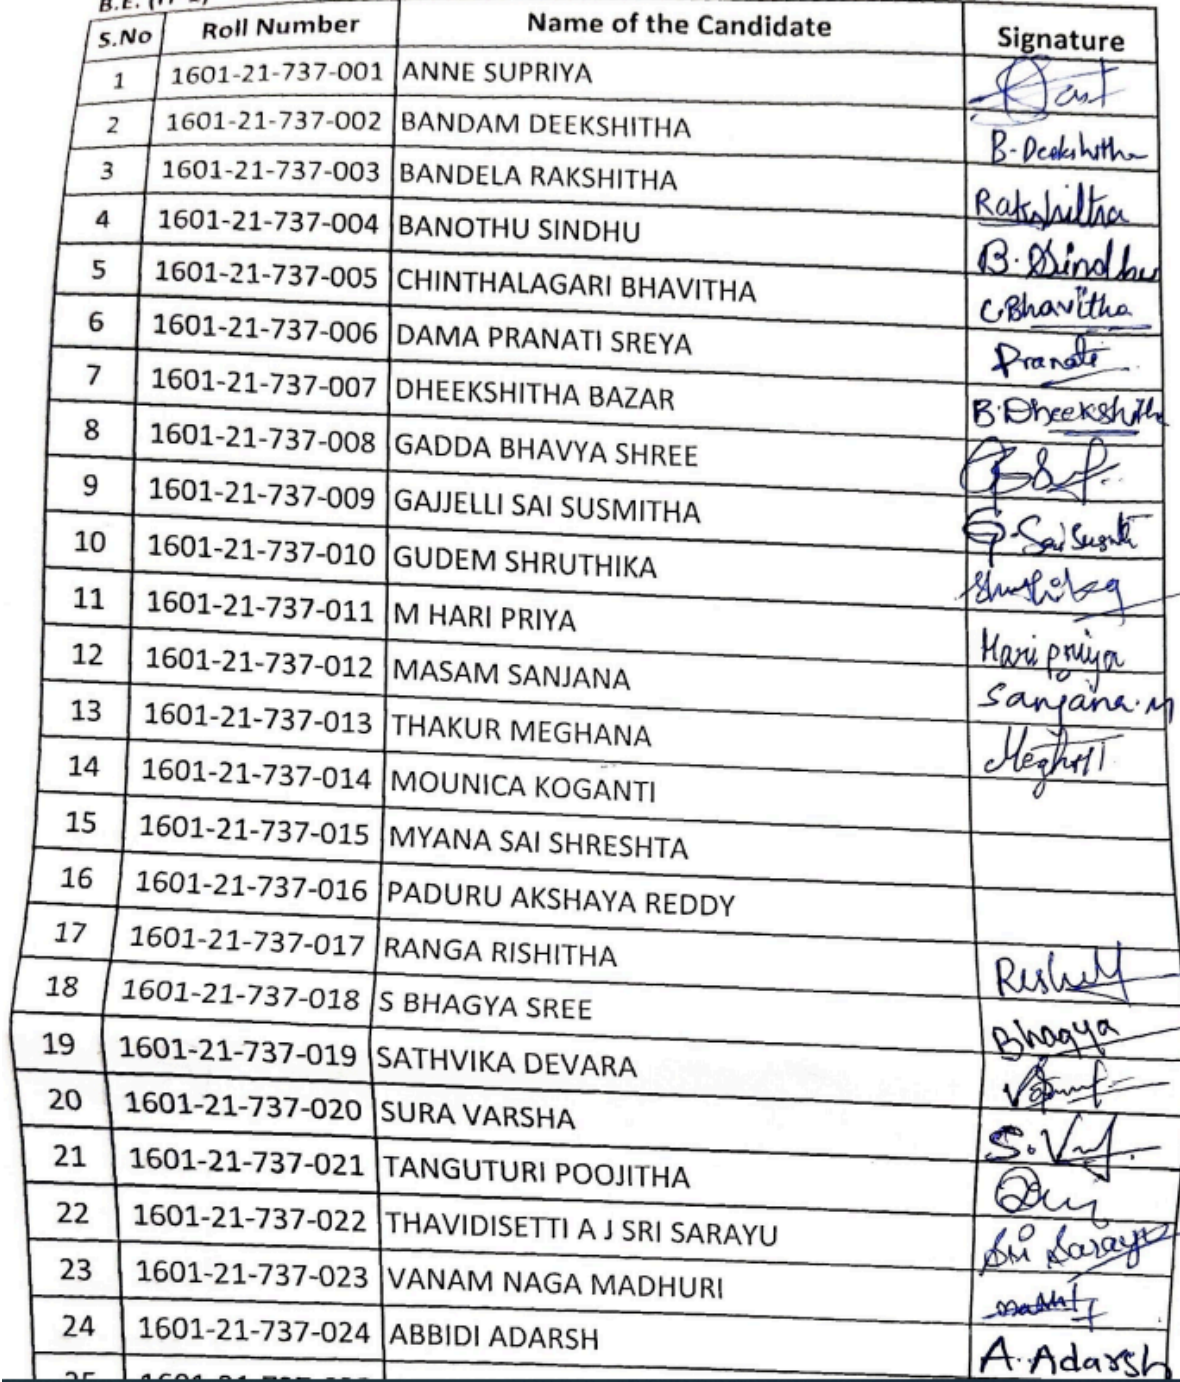 S.No Roll Number Name of the Candidate Signature
1 1601-21-737-001 ANNE SUPRIYA
2 1601-21-737-002 BANDAM DEEKSHITHA B-Deekshitha
3 1601-21-737-003 BANDELA RAKSHITHA Rakshitha
4 1601-21-737-004 BANOTHU SINDHU B.Sindhu
5 1601-21-737-005 CHINTHALAGARI BHAVITHA C.Bhavitha
6 1601-21-737-006 DAMA PRANATI SREYA Pranati
7 1601-21-737-007 DHEEKSHITHA BAZAR B.Dheekshitha
8 1601-21-737-008 GADDA BHAVYA SHREE
9 1601-21-737-009 GAJJELLI SAI SUSMITHA
10 1601-21-737-010 GUDEM SHRUTHIKA
11 1601-21-737-011 M HARI PRIYA Haripriya
12 1601-21-737-012 MASAM SANJANA Sanjana.M
13 1601-21-737-013 THAKUR MEGHANA
14 1601-21-737-014 MOUNICA KOGANTI
15 1601-21-737-015 MYANA SAI SHRESHTA
16 1601-21-737-016 PADURU AKSHAYA REDDY
17 1601-21-737-017 RANGA RISHITHA
18 1601-21-737-018 S BHAGYA SREE Bhagya
19 1601-21-737-019 SATHVIKA DEVARA
20 1601-21-737-020 SURA VARSHA
21 1601-21-737-021 TANGUTURI POOJITHA
22 1601-21-737-022 THAVIDISETTI A J SRI SARAYU Sri Sarayu
23 1601-21-737-023 VANAM NAGA MADHURI
24 1601-21-737-024 ABBIDI ADARSH A.Adarsh